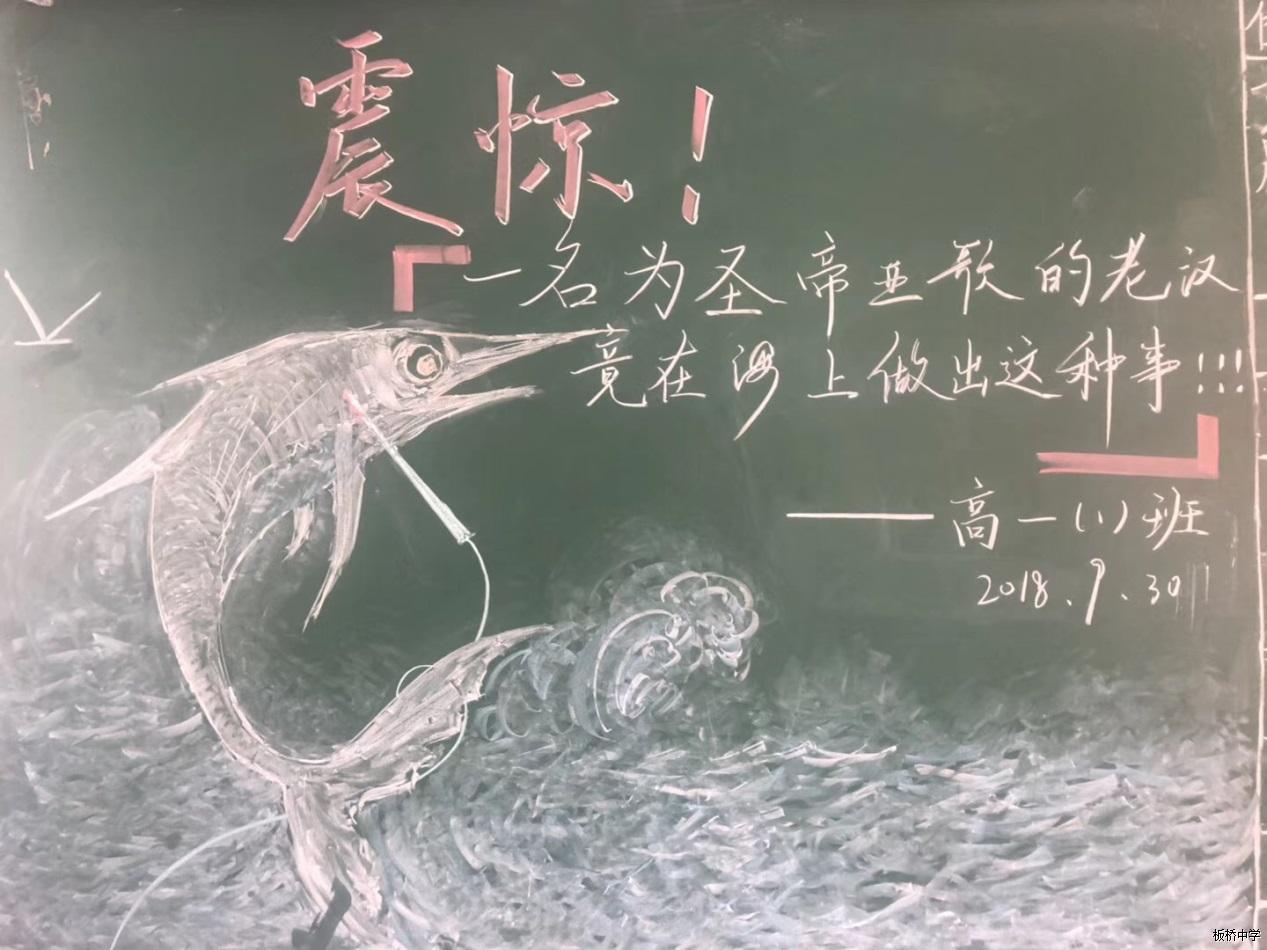 震惊!
「一名为圣帝亚歌的老汉
竟在海上做出这种事!!!」
——高一(1)班
2018.9.30
板桥中学